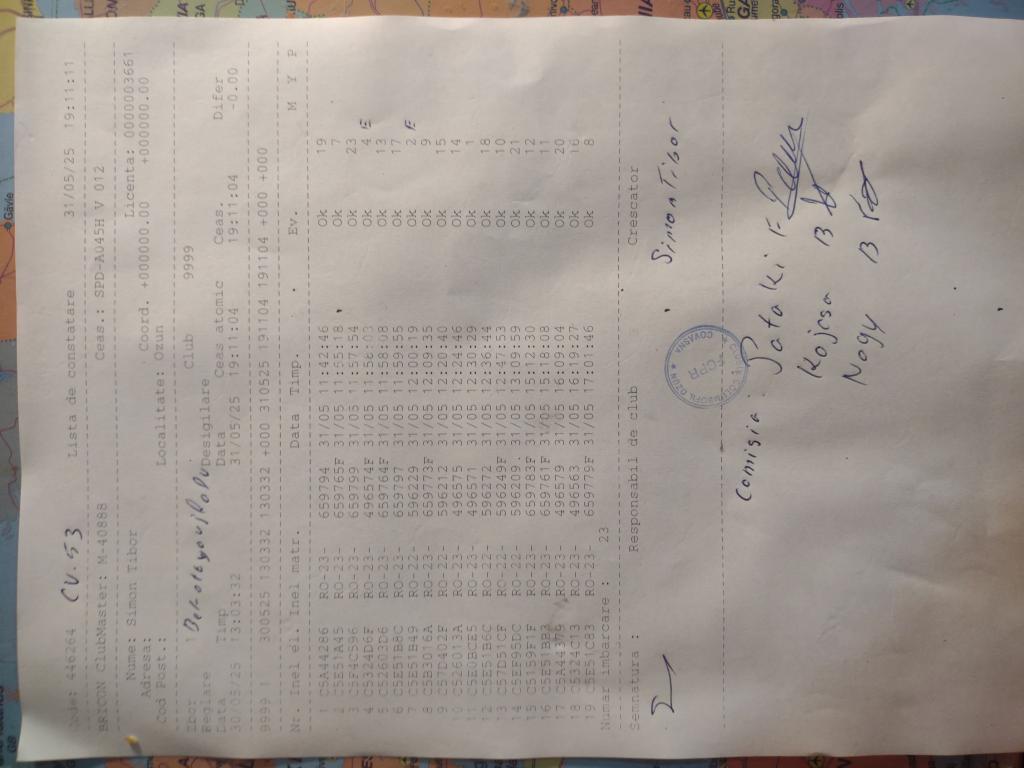 Code: 446264 CV.53 Lista de constatare 31/05/25 19:11:11
BRICON ClubMaster: M-40888 Ceas.: SPD-A045H V 012
Nume: Simon Tibor Licenta: 00000003661
Adresa: Coord. +000000.00 +000000.00
Cod Post.: Localitate: Ozun
Zbor Club 9999
Reglare Desigilare
Data Timp Data Ceas atomic Ceas. Difer
30/05/25 13:03:32 31/05/25 19:11:04 19:11:04 -0.00
9999 11 300525 130332 130332 +000 310525 191104 191104 +000 +000
Nr. Inel el. Inel matr. Data Timp. Ev. M Y P
1 C5A44286 RO-23- 659794 31/05 11:42:46 Ok 19
2 C5E51A45 RO-23- 659765F 31/05 11:55:18 Ok 7
3 C5F3C596 RO-23- 659799 31/05 11:57:54 Ok 23
4 C5324D6F RO-23- 496574F 31/05 11:58:03 Ok 4 E
5 C52603C6 RO-23- 659764F 31/05 11:58:08 Ok 13
6 C5E51B8C RO-23- 659797 31/05 11:59:55 Ok 17
7 C5E51B49 RO-22- 596229 31/05 12:00:19 Ok 2 E
8 C5B3016A RO-23- 659773F 31/05 12:09:35 Ok 9
9 C57D402F RO-22- 596212 31/05 12:20:40 Ok 15
10 C526013A RO-23- 496575 31/05 12:24:46 Ok 14
11 C5E0BCE5 RO-23- 496571 31/05 12:30:29 Ok 1
12 C5E51B6C RO-22- 596272 31/05 12:36:44 Ok 18
13 C57D51CF RO-22- 596249F 31/05 12:47:53 Ok 10
14 C5EF9FDC RO-22- 596209 31/05 13:09:59 Ok 21
15 C5159F1F RO-23- 659783F 31/05 15:12:30 Ok 12
16 C5E51BB3 RO-23- 659761F 31/05 15:18:08 Ok 11
17 C5A44379 RO-23- 496579 31/05 16:09:04 Ok 20
18 C5324C13 RO-23- 496563 31/05 16:19:27 Ok 16
19 C5E51C83 RO-23- 659779F 31/05 17:01:46 Ok 8
Numar imbarcare : 23
Semnatura : Responsabil de club Crescator
Simon Tibor
FCPR
COVASNA
Comisia:
Pataki F
Kojcsa B
Nagy B